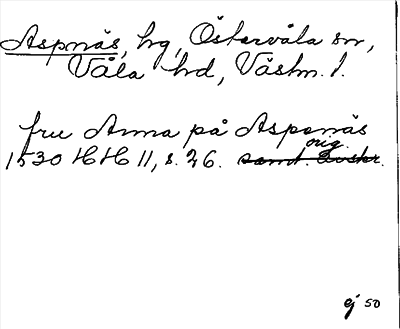 Aspnäs, hg, Östervåla sn,
Våla hd, Västm. l.
fru Anna på Aspenäs
orig.
1530 HH 11, s. 26. samt. avskr.
ej so